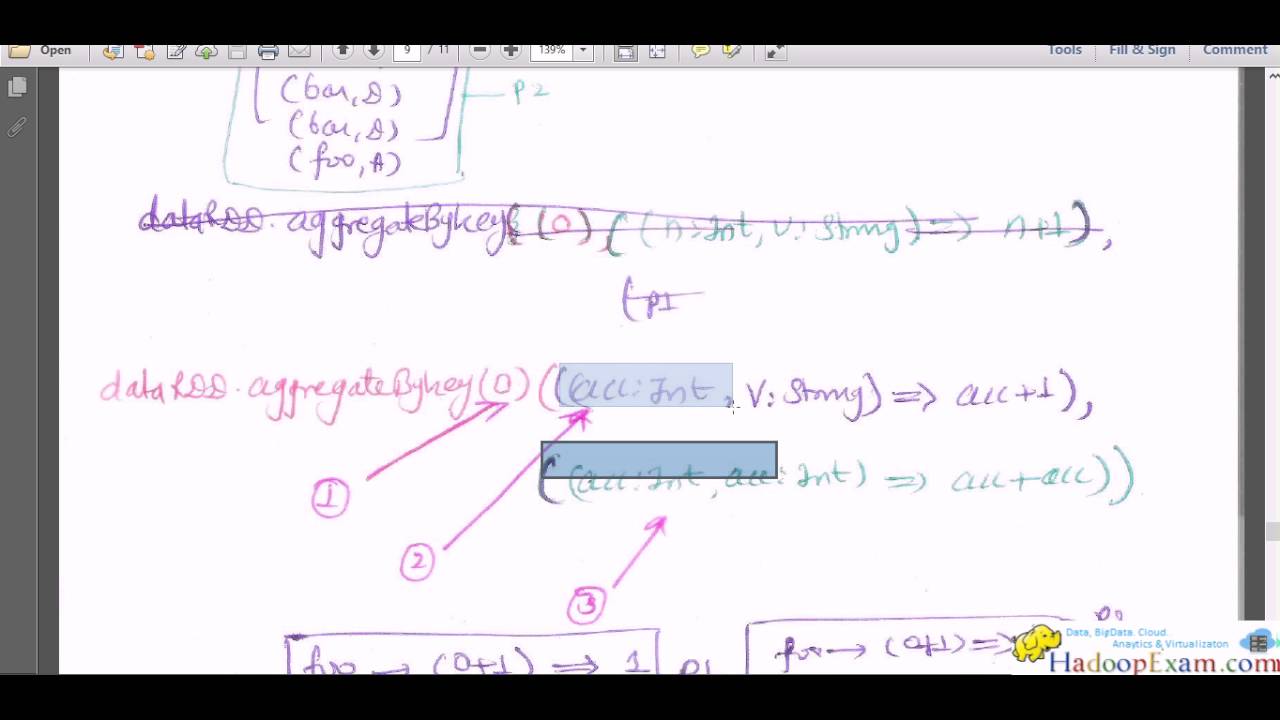 Open 9 / 11 139% Tools Fill & Sign Comment
(bar, D) P2
(bar, D)
(foo, A)
dataRDD.aggregateByKey((0)((n:Int, V:String) => n+1),
(P1
dataRDD.aggregateByKey(0)((acc:Int, V:String) => acc+1),
((acc:Int, acc:Int) => acc+acc))
1
2
3
foo → (0+1) => 1 P1 foo → (0+1) =>
Data, BigData. Cloud..
Anaytics & Virtualizaton
HadoopExam.com